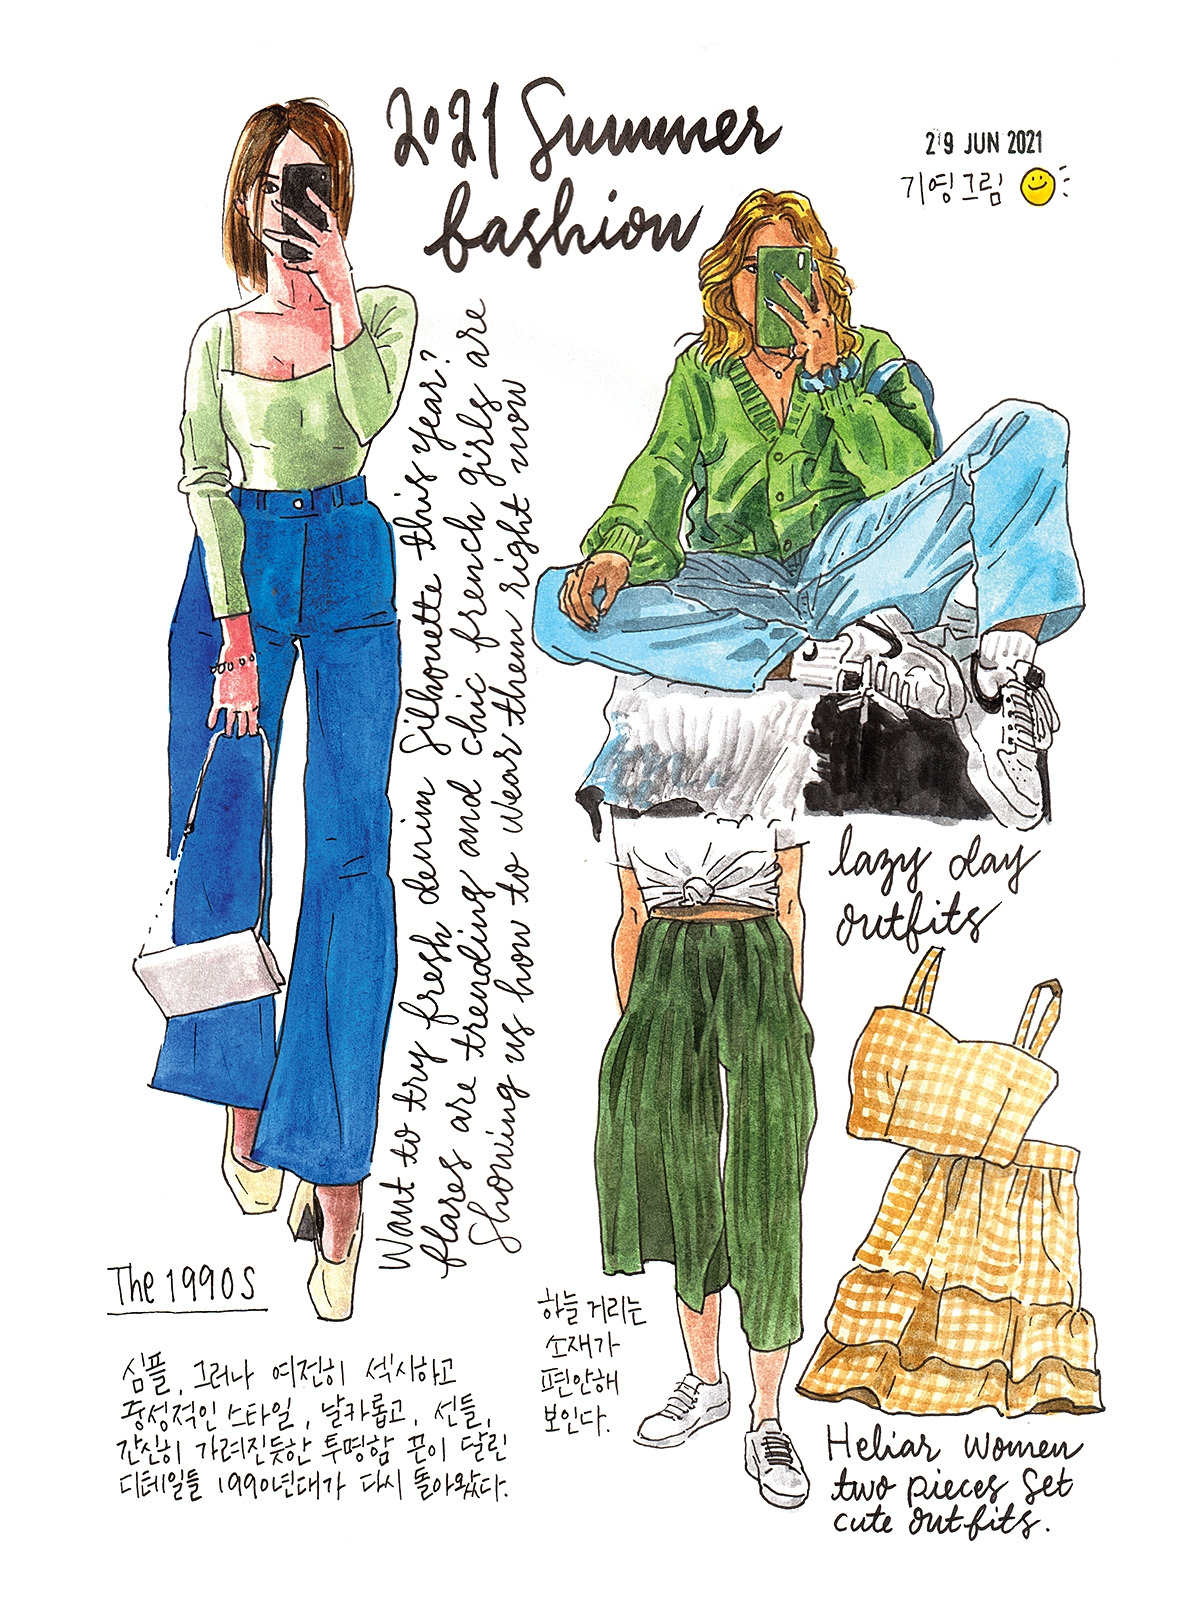 2021 Summer
fashion
29 JUN 2021
기영그림
Want to try fresh denim Silhouette this year?
flares are trending and chic french girls are
Showing us how to wear them right now
lazy day
outfits
The 1990s
심플, 그러나 여전히 섹시하고
중성적인 스타일, 날카롭고, 선들,
간신히 가려진듯한 투명함 끈이 달린
디테일들 1990년대가 다시 돌아왔다.
하늘거리는
소재가
편안해
보인다.
Heliar Women
two pieces Set
cute outfits.